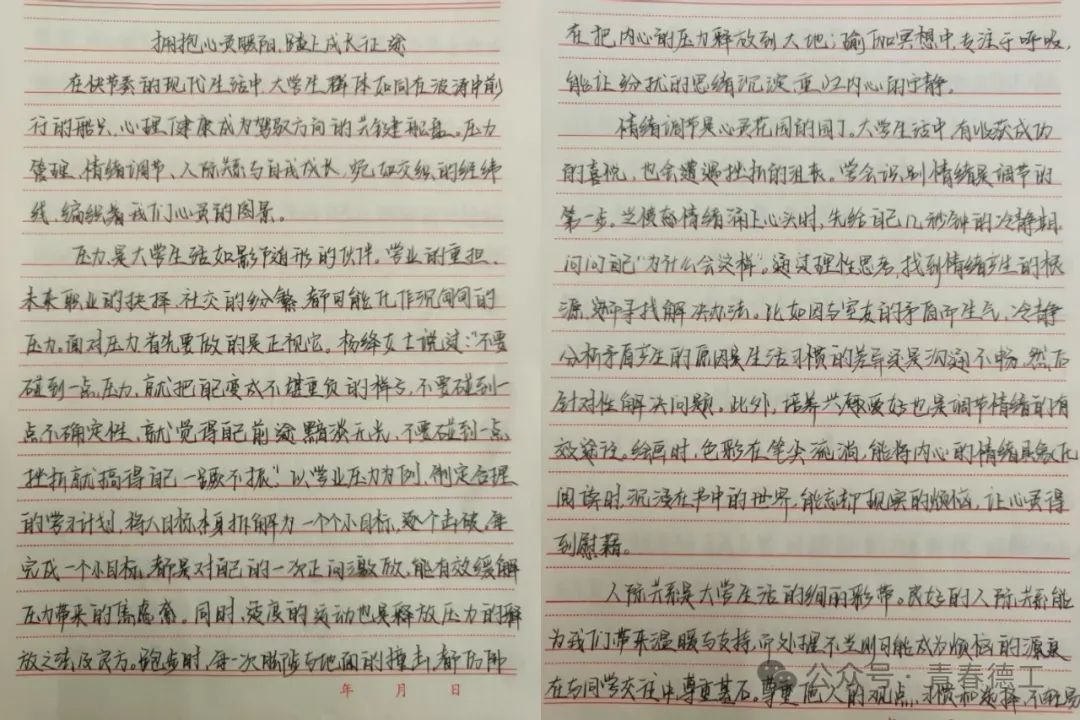 拥抱心灵暖阳,踏上成长征途
在快节奏的现代生活中,大学生群体如同在波涛中前
行的船只,心理健康成为驾驭方向的关键舵盘。压力
管理、情绪调节、人际关系与自我成长,宛如交织的经纬
线,编织着我们心灵的图景。
压力是大学生活如影随形的伙伴。学业的重担、
未来职业的抉择、社交的纷繁,都可能化作沉甸甸的
压力。面对压力,首先要做的是正视它。杨绛女士说过:“不要
碰到一点压力,就把自己变成不堪重负的样子,不要碰到一
点不确定性,就觉得自己前途黯淡无光,不要碰到一点
挫折就搞得自己一蹶不振。”以学业压力为例,制定合理
的学习计划,将大目标本身拆解为一个个小目标,逐个击破,每
完成一个小目标,都是对自己的一次正向激励,能有效缓解
压力带来的焦虑。同时,适度的运动也是释放压力的释
放之法及良方。跑步时,每一次脚步与地面的撞击,都仿佛
年 月 日
在把内心的压力释放到大地;瑜伽冥想中,专注于呼吸,
能让纷扰的思绪沉淀,重归内心的宁静。
情绪调节是心灵花园的园丁。大学生活中,有收获成功
的喜悦,也会遭遇挫折的沮丧。学会识别情绪是调节的
第一步。当愤怒情绪涌上心头时,先给自己几秒钟的冷静期,
问问自己“为什么会这样”。通过理性思考,找到情绪产生的根
源,进而寻找解决办法。比如因与室友的矛盾而生气,冷静
分析矛盾产生的原因是生活习惯的差异还是沟通不畅,然后
针对性解决问题。此外,培养兴趣爱好也是调节情绪的有
效途径。绘画时,色彩在笔尖流淌,能将内心的情绪具象化
阅读时,沉浸在书中的世界,能忘却现实的烦恼,让心灵得
到慰藉。
人际关系是大学生活的绚丽彩带。良好的人际关系能
为我们带来温暖与支持,而处理不当则可能成为烦恼的源泉
在与同学交往中,尊重是基石。尊重他人的观点、习惯和选择,不轻易
公众号·青春德工